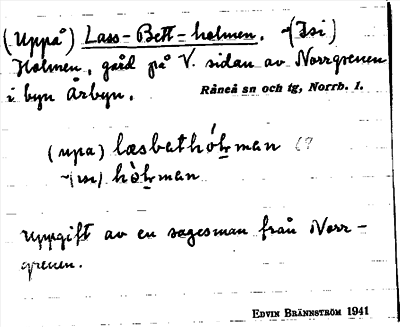 (Uppå) Lass-Bett-holmen. ~(Isi)
Holmen, gård på V. sidan av Norrgrenen
i byn Årbyn. Råneå sn och tg, Norrb. l.
(upa) læsbathóḻman (?
~(isi) hòḻman
Uppgift av en sagesman från Norr-
grenen.
EDVIN BRÄNNSTRÖM 1941